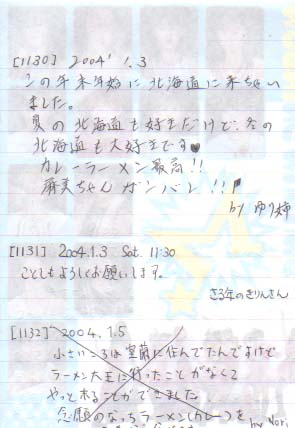 [1130] 2004' 1.3
この年末年始に北海道に来ちゃい
ました。
夏の北海道も好きだけど、冬の
北海道も大好きです♥
カレーラーメン最高!!
麻美ちゃんガンバレ!!
by ゆり姉
[1131] 2004.1.3 Sat. 11:30
ことしもよろしくお願いします。
さる年のきりんさん
[1132] 2004.1.5
小さいころは室蘭に住んでたんですけど
ラーメン大王に行ったことがなくて
やっと来ることができました。
念願のなっちラーメン(カレー)を
by Nori